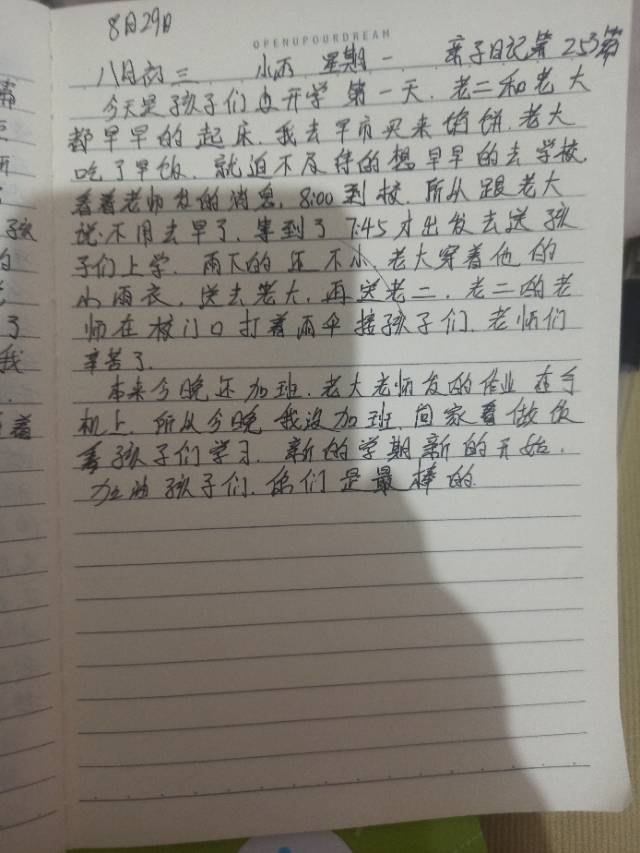 8月29日
OPENUPOURDREAM
八月初三 小雨 星期一 亲子日记第253篇
今天是孩子们的开学第一天.老二和老大
都早早的起床.我去早市买来馅饼.老大
吃了早饭.就迫不及待的想早早的去学校.
看着老师发的消息,8:00到校.所以跟老大
说.不用去早了.等到了7:45才出发去送孩
子们上学.雨下的还不小,老大穿着他的
小雨衣.送去老大.再送老二.老二的老
师在校门口打着雨伞接孩子们.老师们
辛苦了.
本来今晚还加班.老大老师发的作业在手
机上.所以今晚我没加班.回家看做饭
看孩子们学习.新的学期新的开始.
加油孩子们.你们是最棒的.
孩
的
了
我
着